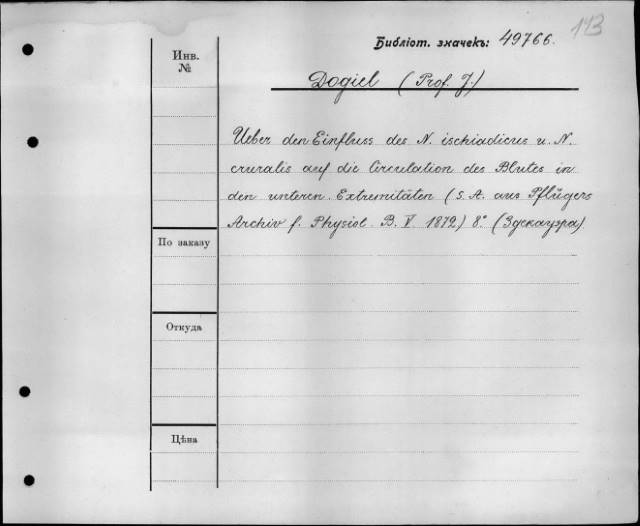 113
Библіот. значекъ: 49766.
Инв.
№
Dogiel (Prof. J.)
Ueber den Einfluss des N. ischiadicus u. N.
cruralis auf die Circulation des Blutes in
den unteren Extremitäten (S. A. aus Pflügers
Archiv f. Physiol. B. V. 1872) 8° (Здекауэра).
По заказу
Откуда
Цѣна